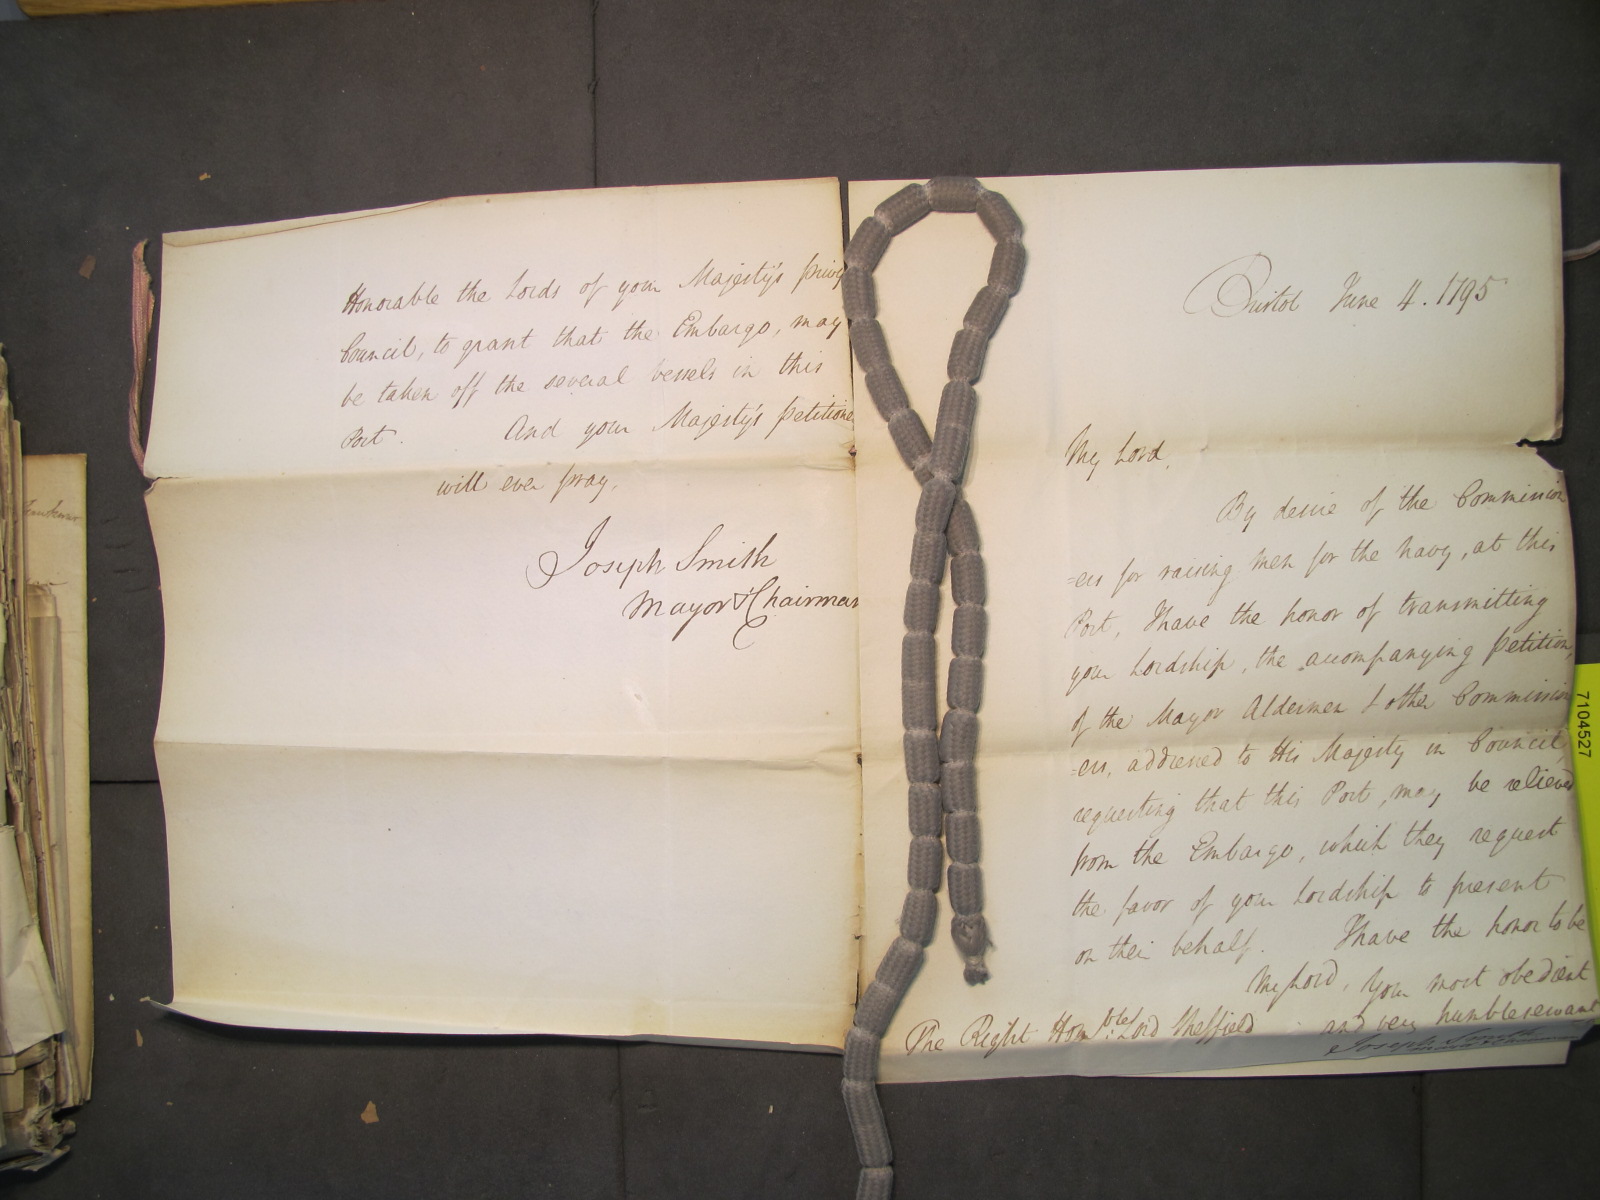 Honorable the Lords of your Majesty's privy
Council, to grant that the Embargo, may
be taken off the several vessels in this
Port. And your Majesty's petitione
will ever pray.
Joseph Smith
Mayor & Chairman
Bristol June 4. 1795
My Lord,
By desire of the Commission
=ers for raising men for the navy, at this
Port, I have the honor of transmitting
your Lordship, the accompanying petition,
of the Mayor Aldermen & other Commission
=ers, addressed to His Majesty in Council,
requesting that this Port, may be relieved
from the Embargo, which they request
the favor of your Lordship to present
on their behalf. I have the honor to be
My Lord, your most obedient
and very humble servant
The Right Honble: Lord Sheffield
Joseph Smith
7104527